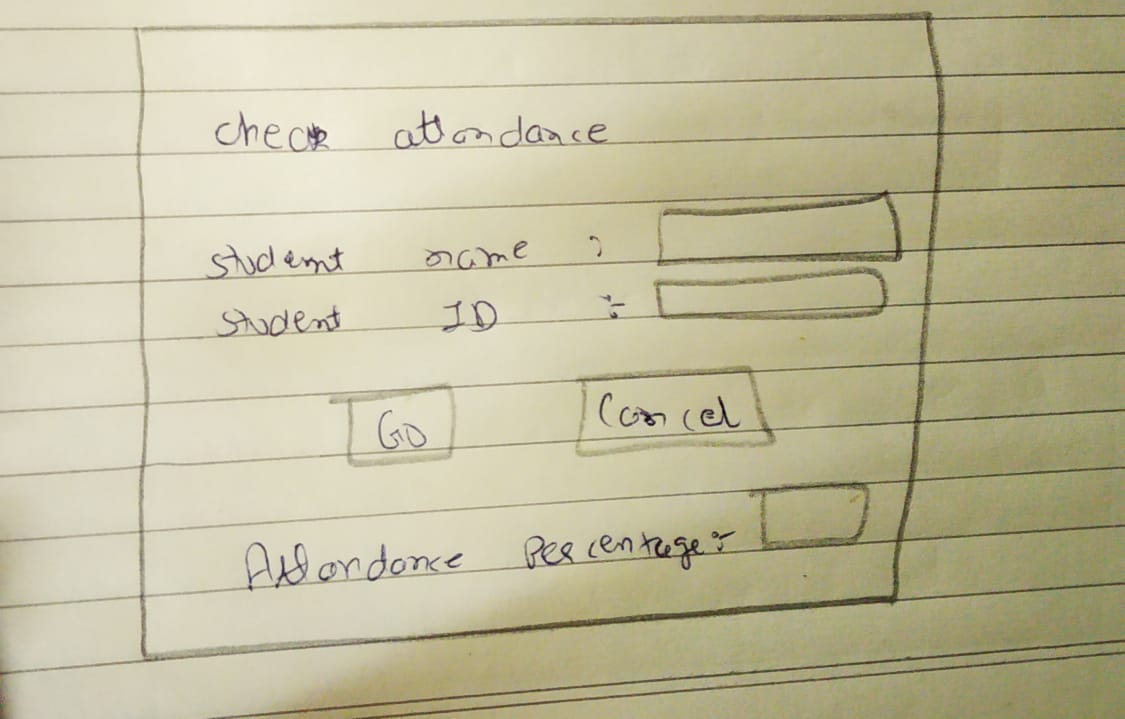 check attondance
student name :
student ID :-
Go
Cancel
Attondance Percentage:-